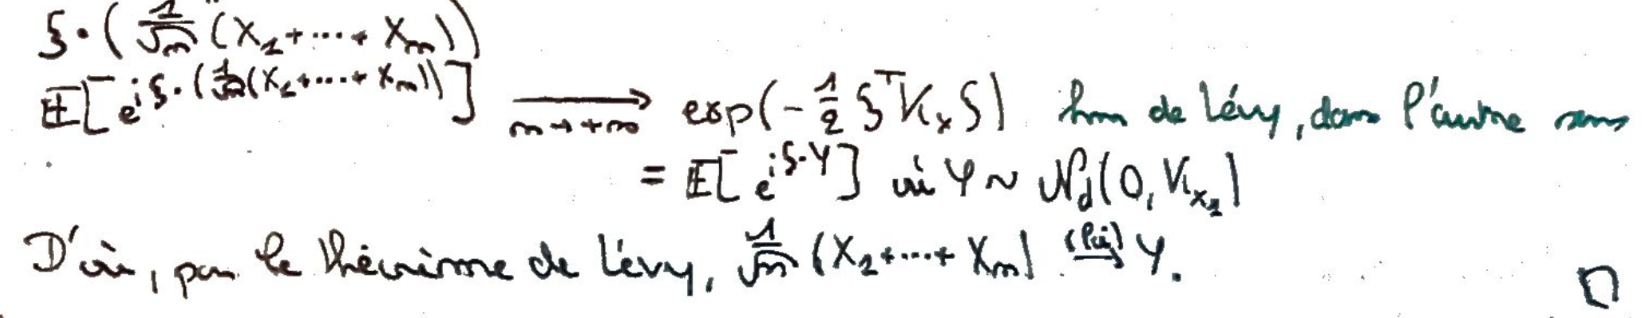 ξ·(1/√n (X₁+⋯+Xₙ))
𝔼[e^{iξ·(1/√n(X₁+⋯+Xₙ))}] ⟶_{n→+∞} exp(-1/2 ξᵀV_{X₁}ξ) thm de Lévy, dans l'autre sens
= 𝔼[e^{iξ·Y}] où Y ~ 𝒩_d(0, V_{X₁})
D'où, par le théorème de Lévy, 1/√n (X₁+⋯+Xₙ) ⟶^{(loi)} Y. □